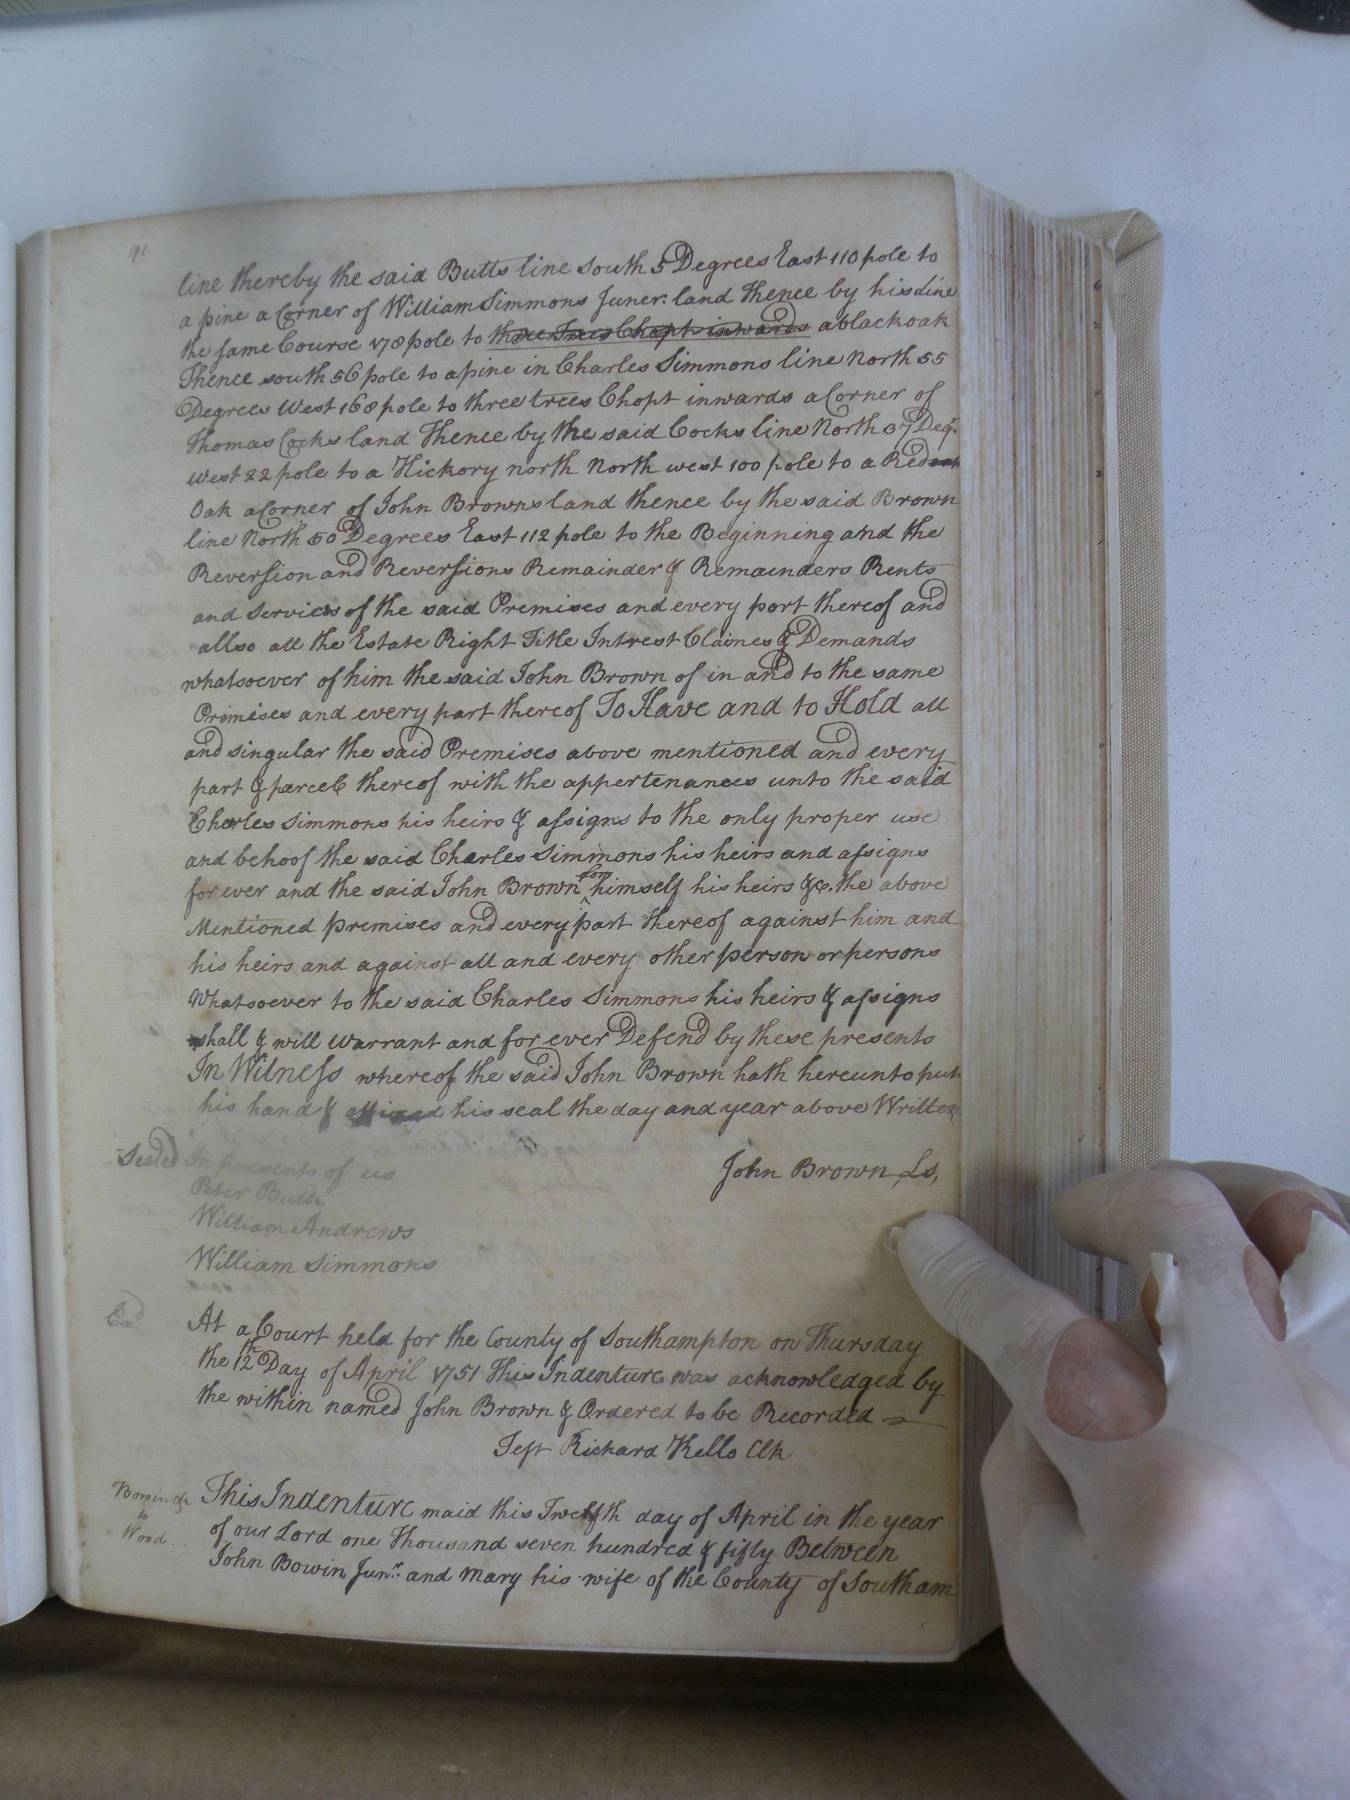 91
line thereby the said Butts line South 5 Degrees East 110 pole to
a pine a Corner of William Simmons Juner. land Thence by his line
the same Course 178 pole to three Trees Chopt inwards a black oak
Thence south 56 pole to a pine in Charles Simmons line North 55
Degrees West 168 pole to three trees Chopt inwards a Corner of
Thomas Cocks land Thence by the said Cocks line North 37 Degr.
West 22 pole to a Hickory north North west 100 pole to a Red
Oak a Corner of John Browns land thence by the said Brown
line North 50 Degrees East 112 pole to the Beginning and the
Reversion and Reversions Remainder & Remainders Rents
and Services of the said Premises and every part thereof and
allso all the Estate Right Title Intrest Claimes & Demands
whatsoever of him the said John Brown of in and to the same
Primises and every part thereof To Have and to Hold all
and singular the said Premises above mentioned and every
part & parcel thereof with the appertenances unto the said
Charles Simmons his heirs & assigns to the only proper use
and behoof the said Charles Simmons his heirs and assigns
for ever and the said John Brown for himself his heirs &c. the above
Mentioned premises and every part thereof against him and
his heirs and against all and every other person or persons
Whatsoever to the said Charles Simmons his heirs & assigns
shall & will warrant and for ever Defend by these presents
In Witness whereof the said John Brown hath hereunto put
his hand & affixed his seal the day and year above Written
Sealed In presents of us
John Brown, Ls,
Peter Butts
William Andrews
William Simmons
Exd
At a Court held for the County of Southampton on Thursday
the 12th Day of April 1751 This Indenture was acknowledged by
the within named John Brown & Ordered to be Recorded
Test Richard Kello Clk
Bowin &c
to
Wood
This Indenture maid this Twelfth day of April in the year
of our Lord one Thousand seven hundred & fifty Between
John Bowin Junr. and Mary his wife of the County of Southam